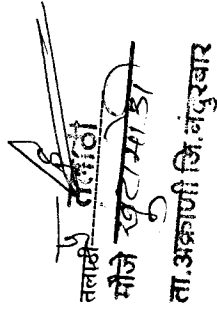 तलाठी
तलाठी
मौजे खुटामोडी
ता.अक्राणी जि.नंदुरबार